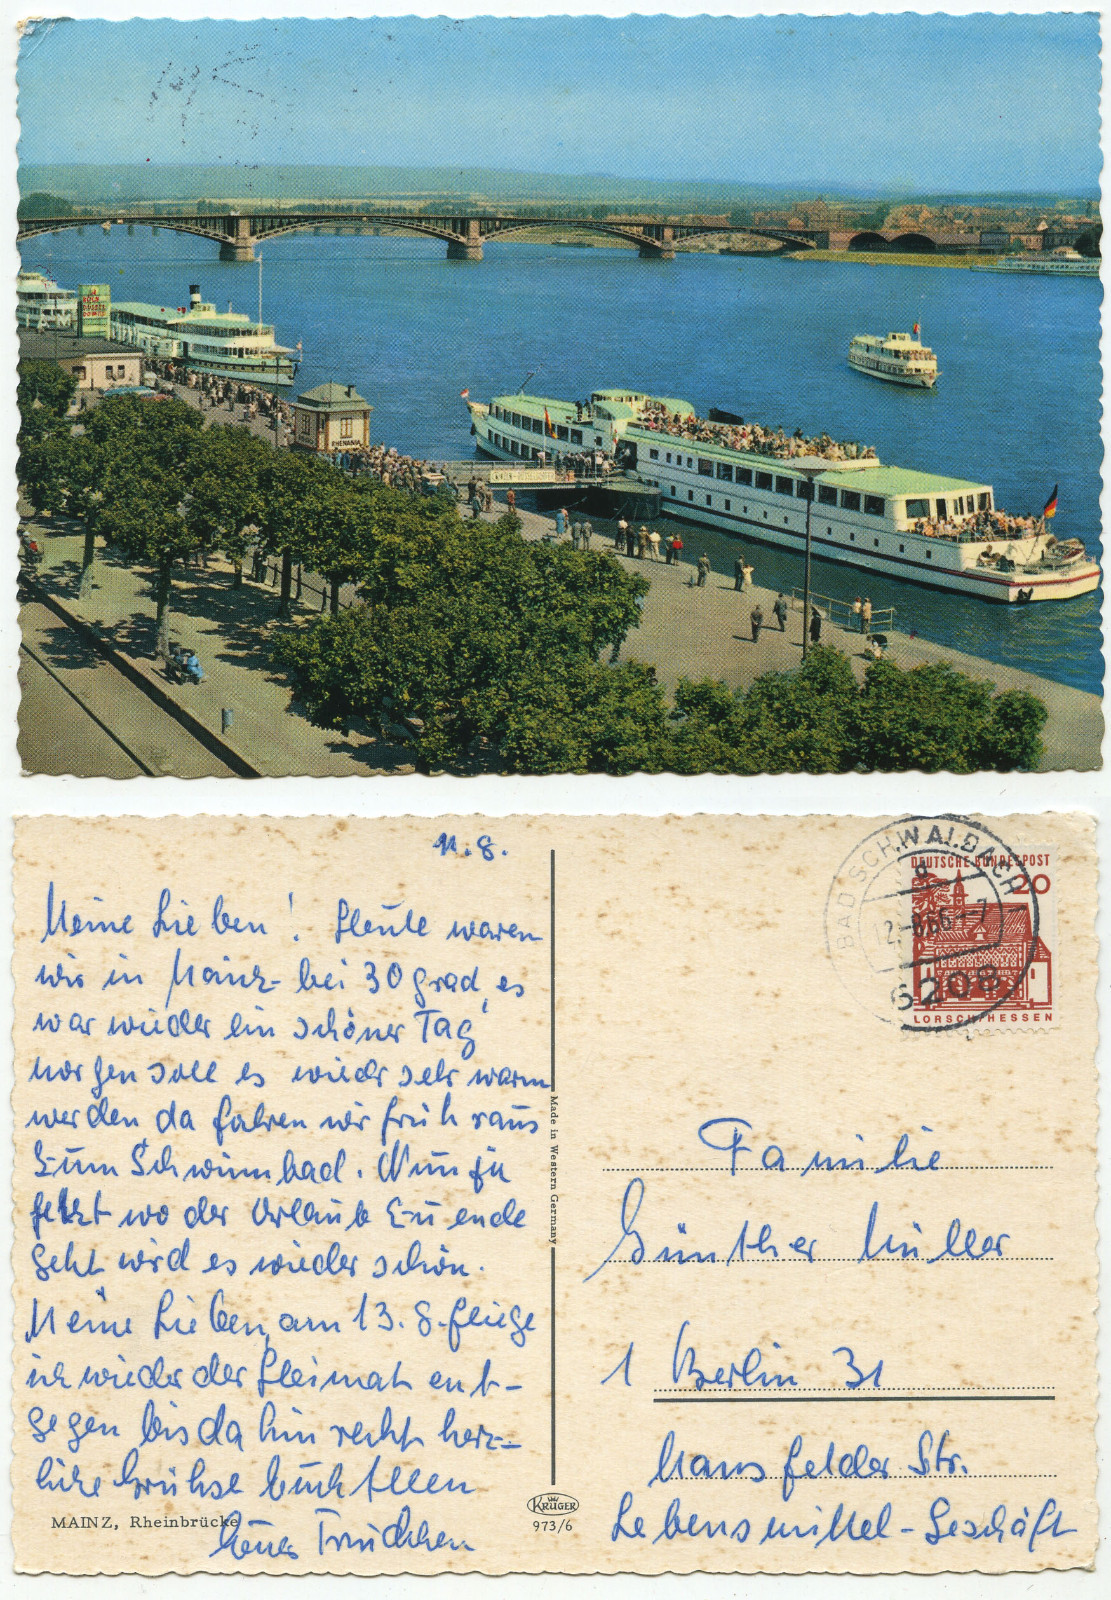 KÖLN
DÜSSEL
DORFER
RHENANIA
11.8.
Meine Lieben! Heute waren
wir in Mainz bei 30 grad, es
war wieder ein schöner Tag
morgen soll es wieder sehr warm
werden da fahren wir früh raus
zum Schwimmbad. Nun
jetzt wo der Urlaub zu ende
geht wird es wieder schön.
Meine Lieben, am 13.8. fliege
ich wieder der Heimat ent-
gegen bis dahin recht herz-
liche Grühse Euch Allen
Eure Trudchen
MAINZ, Rheinbrücke
Made in Western Germany
KRÜGER
973/6
BAD SCHWALBACH
d
12.-8.66.-7
6208
DEUTSCHE BUNDESPOST
20
LORSCH/HESSEN
Familie
Günther Müller
1 Berlin 31
Mansfelder Str.
Lebensmittel-Geschäft